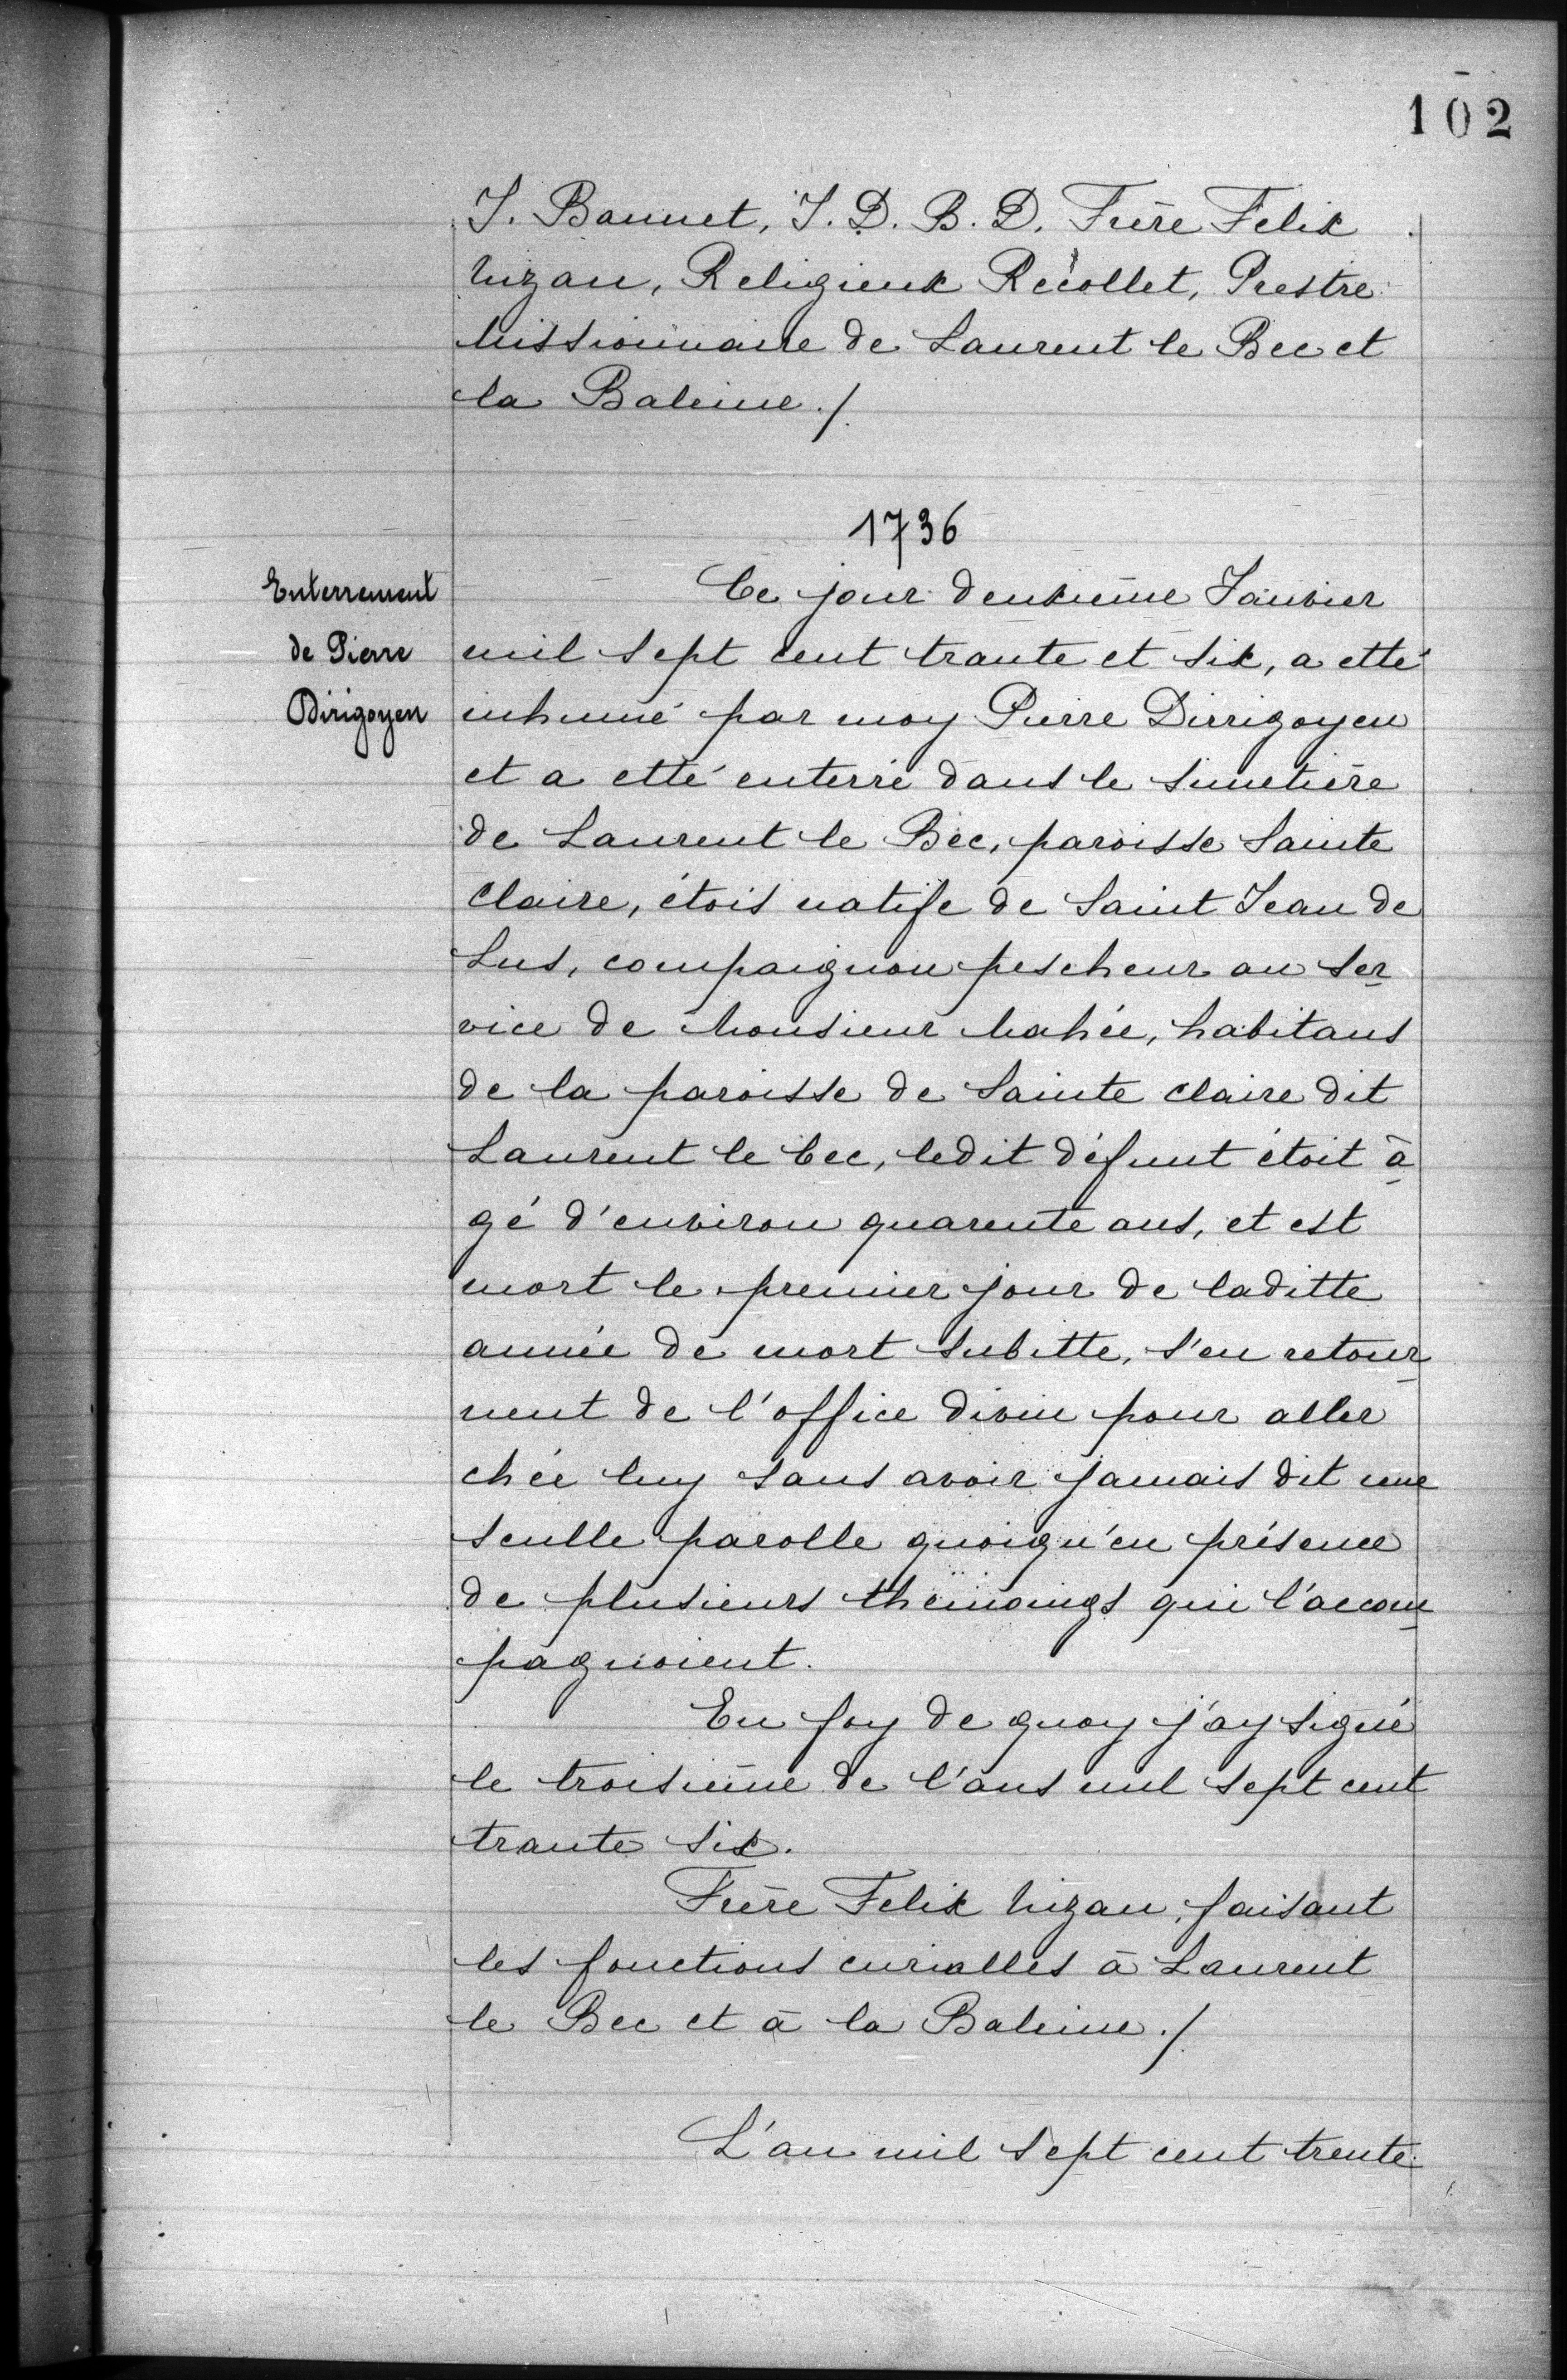 102
J. Bannet, J. D. B. D. Frère Felix
Mizan, Religieux Récollet, Prestre
Missionnaire de Laurent le Bec et
la Baleine ./
1736
Enterrement
de Pierre
Dirigoyen
Ce jour deuxième Janvier
mil sept cent trante et six, a etté
inhumé par moy Pierre Dirrigoyen
et a etté enterré dans le simetière
de Laurent le Bec, paroisse Sainte
Claire, étois natife de Saint Jean de
Lus, compaignon pescheur au ser
vice de Monsieur Mahée, habitans
de la paroisse de Sainte Claire dit
Laurent le bec, ledit défunt étoit à
gé d'environ quarente ans, et est
mort le premier jour de laditte
année de mort subitte, s'en retour
nent de l'office divin pour aller
chée luy sans avoir jamais dit une
seulle parolle quoiqu'en présence
de plusieurs themoings qui l'accom
pagnoient.
En foy de quoy j'ay signé
le troisième de l'ans mil sept cent
trante six.
Frère Felix Mizan, faisant
les fonctions curialles à Laurent
le Bec et à la Baleine ./
L'an mil sept cent trente